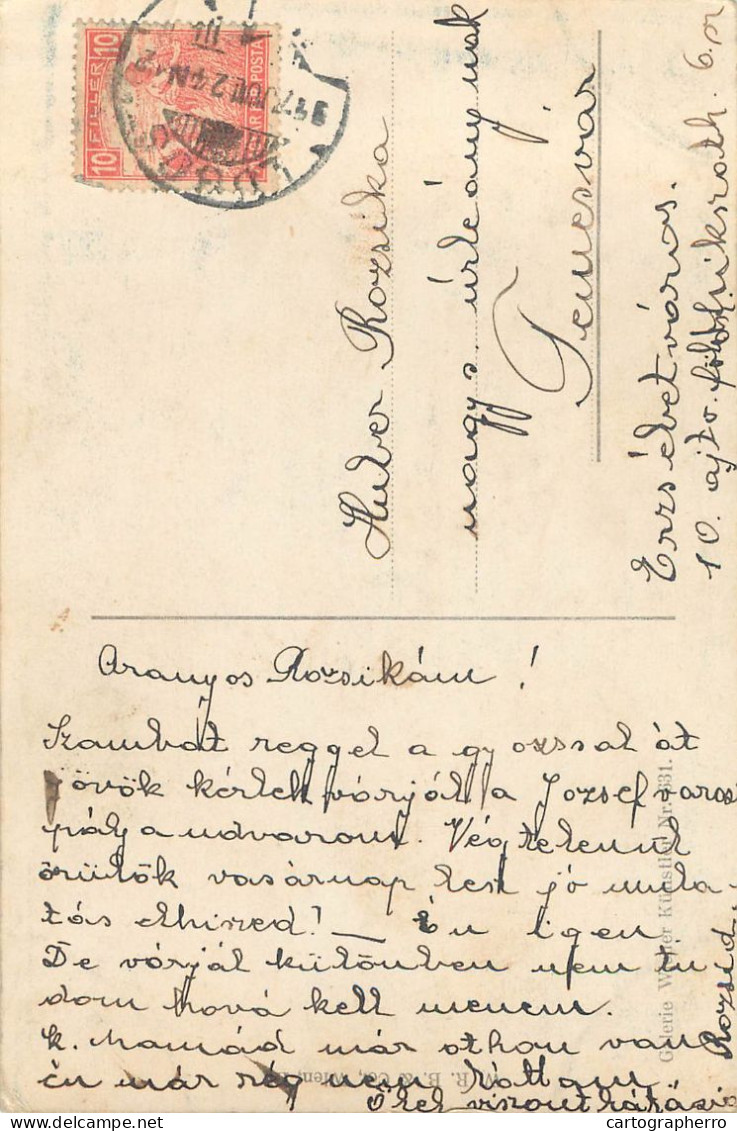 10 FILLER 10
MAGYAR KIR. POSTA
917 JUL 24
Huber Rozsika
nagys. úrleánynak
Temesvár
Erzsébetváros.
10. ajtó. földsz.
Aranyos Rozsikám!
Szombat reggel a gyorssal át
jövök kérlek várjál a Jozsefvaros
pályaudvarom. Végtelenül
örülök vasárnap lesz jó mula-
tás elhiszed! — Én igen.
De várjál különben nem tu
dom hová kell menem.
k. Mamád már othon van
én már rég nem láttam.
Ölel viszontlátási
Rozsid.
Galerie Wiener Künstler Nr. 831.
W. R. B. & Co., Wien,
cartographerro
delcampe.net